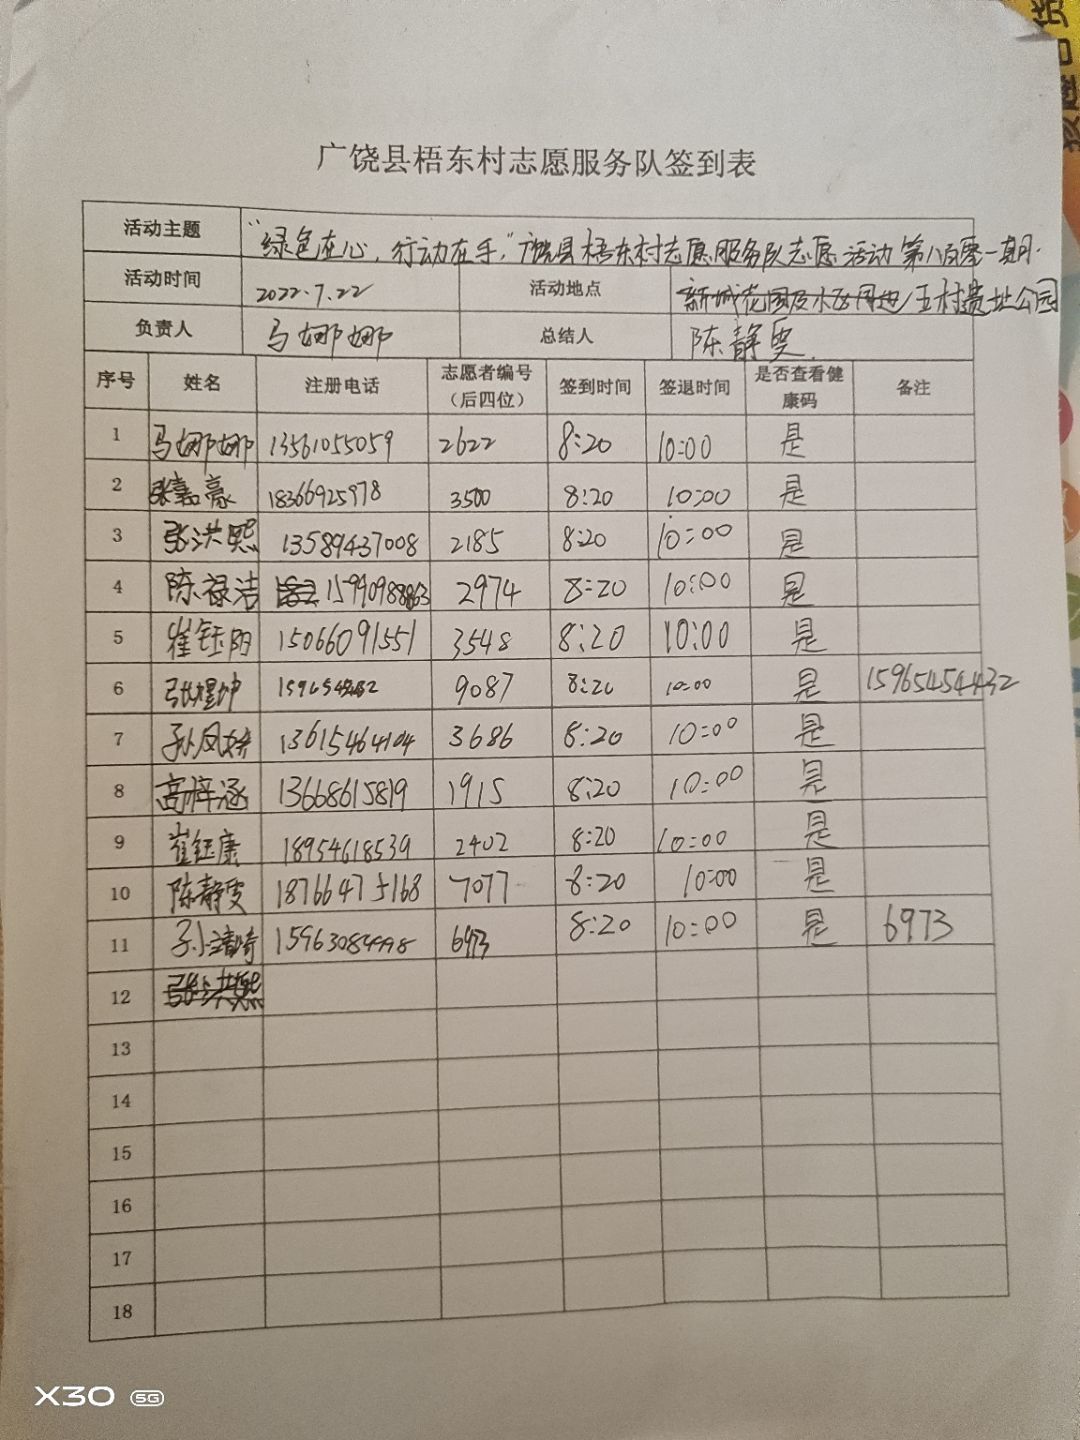 广饶县梧东村志愿服务队签到表
活动主题 “绿色在心,行动在手,”广饶县梧东村志愿服务队志愿活动第八百零一期.
活动时间 2022.7.22 活动地点 王村遗址公园
负责人 马娜娜 总结人 陈静雯
序号 姓名 注册电话 志愿者编号(后四位) 签到时间 签退时间 是否查看健康码 备注
1 马娜娜 13561055059 2622 8:20 10:00 是
2 张嘉豪 18366925978 3500 8:20 10:00 是
3 张洪熙 13589437008 2185 8:20 10:00 是
4 陈禄洁 15990988863 2974 8:20 10:00 是
5 崔钰阳 15066091551 3548 8:20 10:00 是
6 张煜坤 9087 8:20 10:00 是 15965454432
7 孙凤妍 13615464104 3686 8:20 10:00 是
8 高梓涵 13668615819 1915 8:20 10:00 是
9 崔钰康 18954618539 2402 8:20 10:00 是
10 陈静雯 18766475168 7077 8:20 10:00 是
11 孙靖崎 15963084498 6973 8:20 10:00 是 6973
12 张洪熙
13
14
15
16
17
18
X30 5G